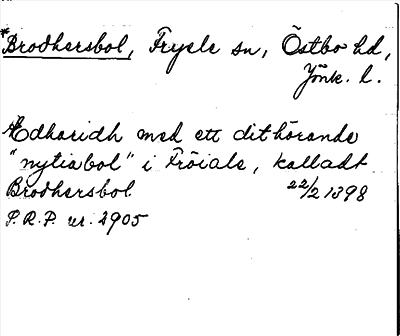 *Brodhersbol, Fryele sn, Östbo hd,
Jönk. l.
Ædharidh med ett dithörande
"nytiabol" i Fröiale, kalladt
Brodhersbol 22/2 1398
S.R.P. nr. 2905